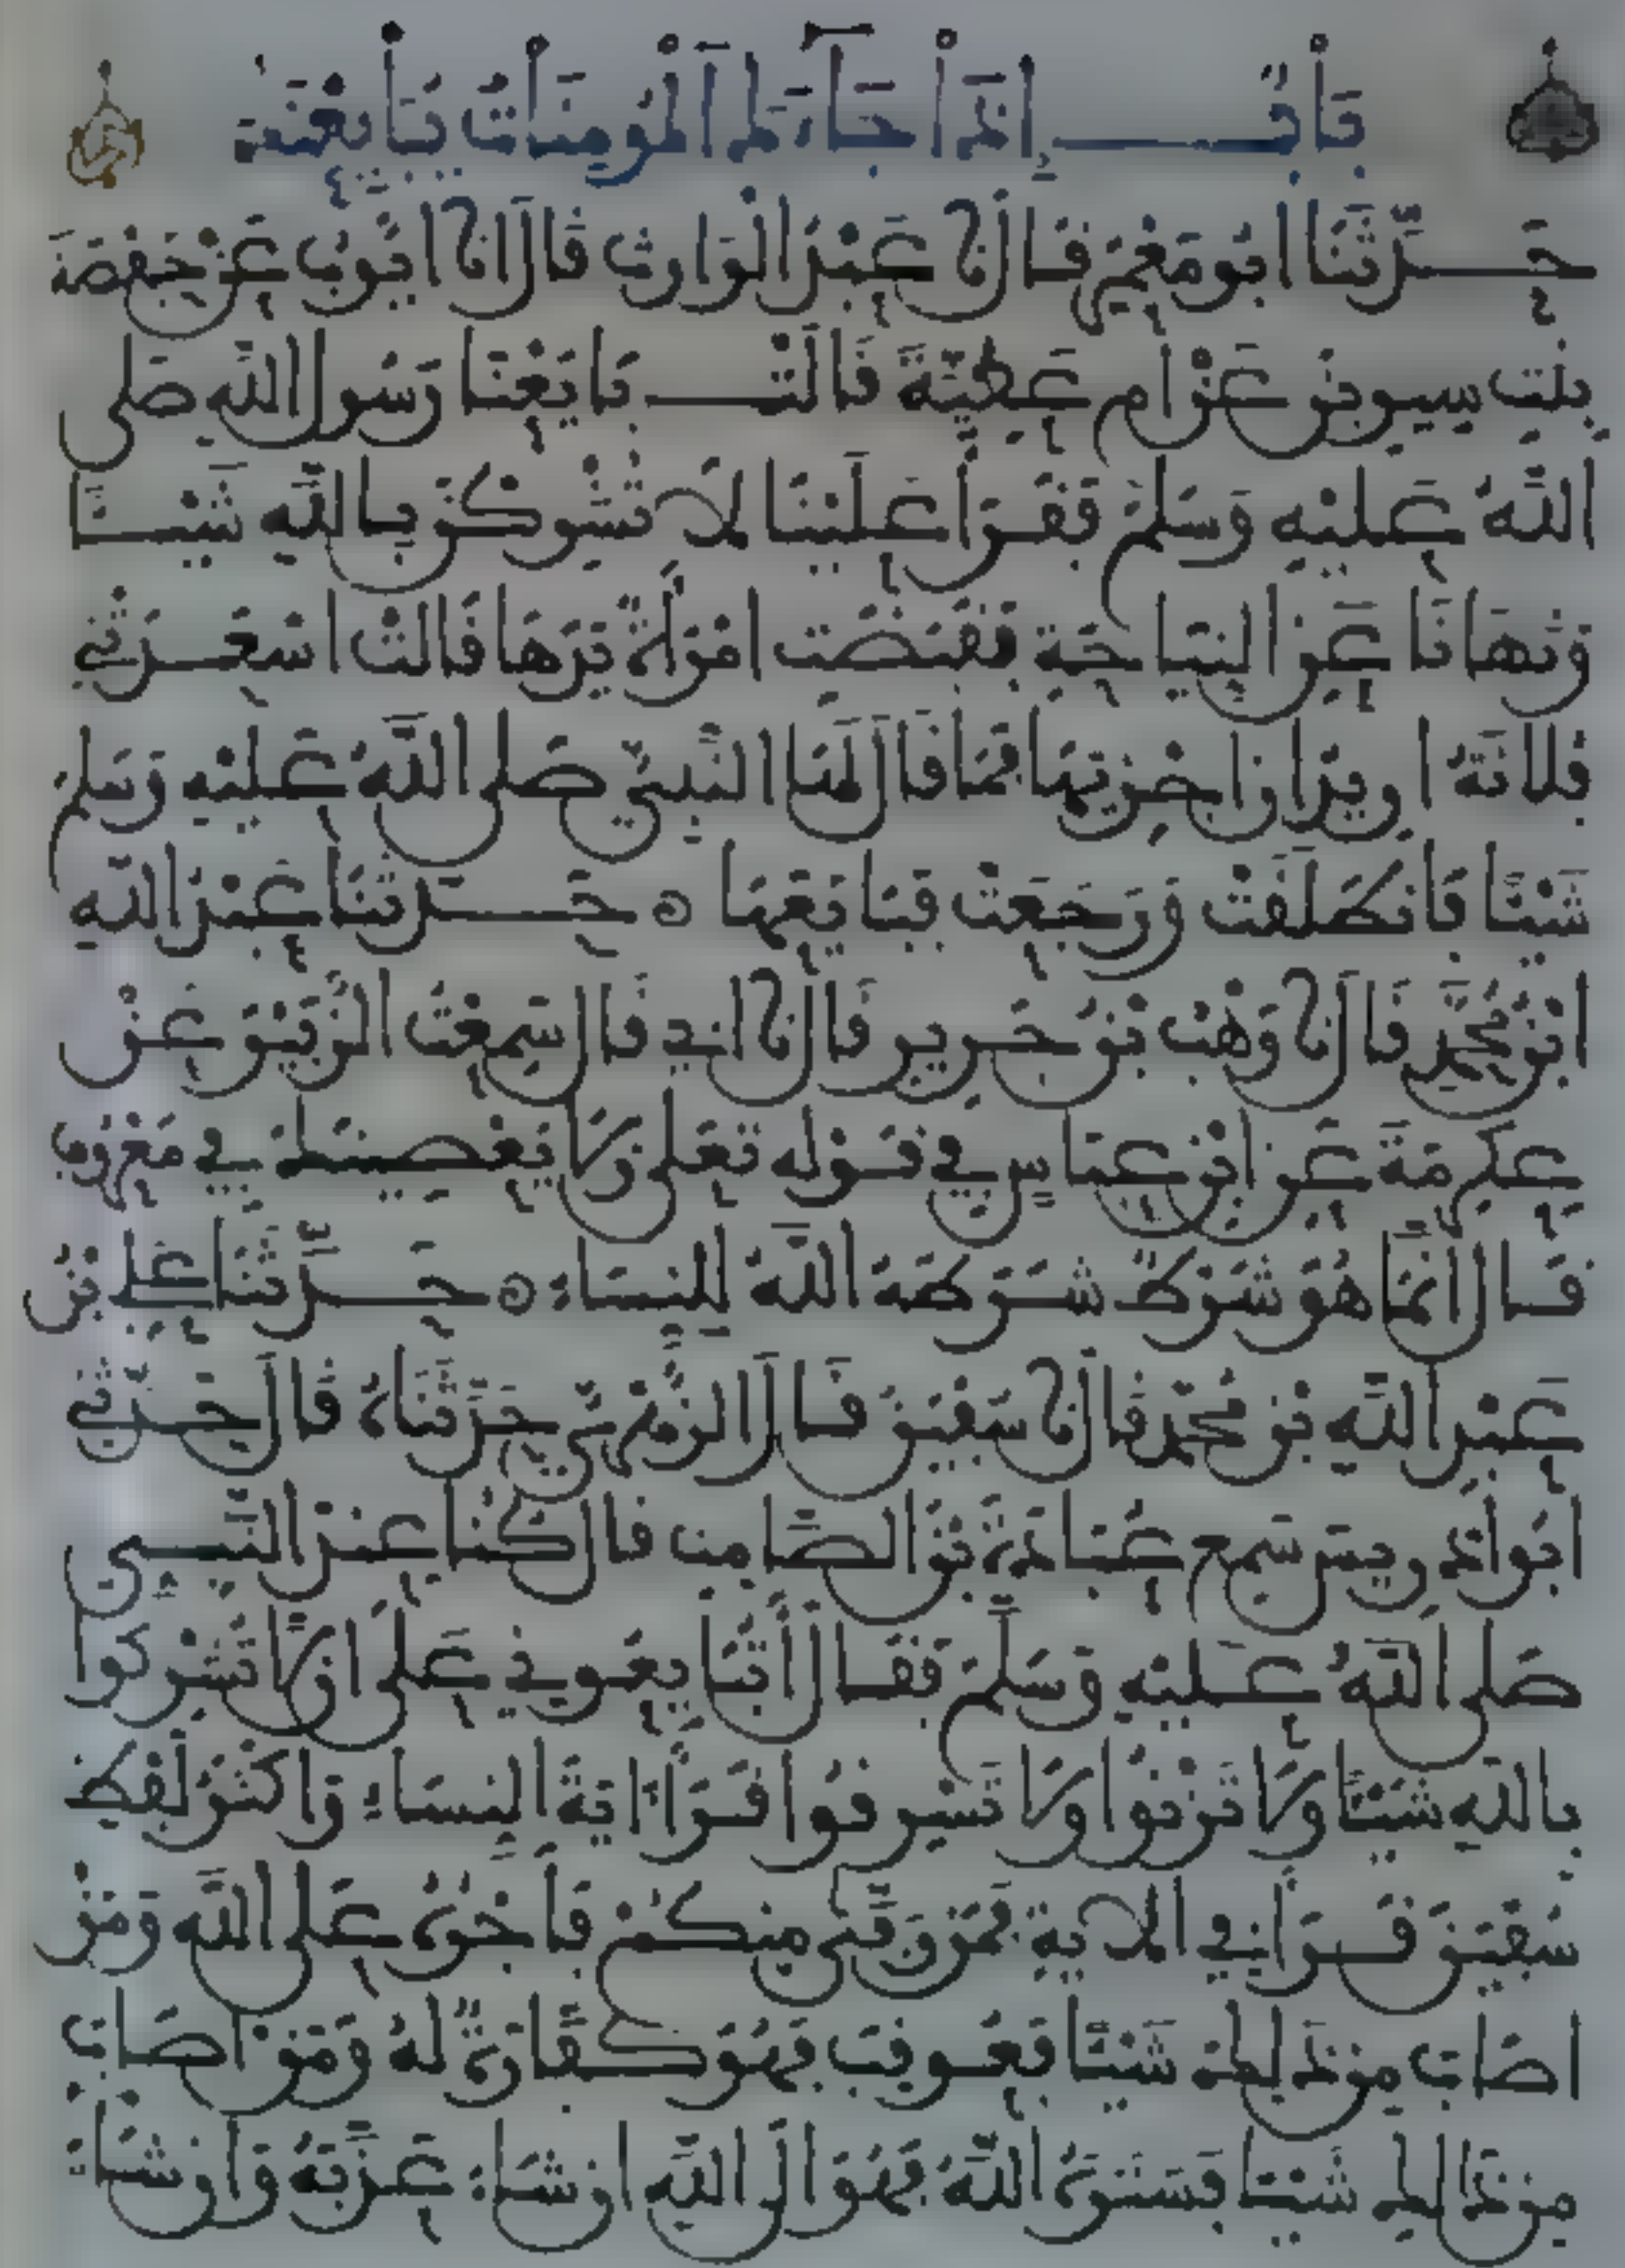 بَابُ إِذَا جَاءَكَ الْمُومِنَاتُ يُبَايِعْنَكَ
حَدَّثَنَا ابُو مَعْمَرٍ قَالَ نَا عَبْدُ الْوَارِثِ قَالَ نَا ايُّوبُ عَنْ حَفْصَةَ
بِنْتِ سِيرِينَ عَنْ ام عَطِيَّةَ قَالَتْ بَايَعْنَا رَسُولَ اللهِ صَلى
اللَّهُ عَلَيْهِ وَسَلمَ فَقَرَأَ عَلَيْنَا لَا تُشْرِكْنَ بِاللَّهِ شَيْئًا
وَنَهَانَا عَنِ النِّيَاحَةِ فَقَبَضَتِ امْرَأَةٌ يَدَهَا قَالَتْ اسْعَدَتْنِي
فُلَانَةُ اريدُ ان اجْزِيَهَا فَمَا قَالَ لَهَا النَّبِيُّ صَلى اللَّهُ عَلَيْهِ وَسَلمَ
شَيْئًا فَانْطَلَقَتْ وَرَجَعَتْ فَبَايَعَهَا حَدَّثَنَا عَبْدُ اللهِ
ابْنُ مُحَمَّدٍ قَالَ نَا وَهْبُ بْنُ جَرِيرٍ قَالَ نَا ابِي قَالَ سَمِعْتُ الزُّبَيْرَ عَنْ
عِكْرِمَةَ عَنِ ابْنِ عَبَّاسٍ فِي قَوْلِهِ تَعَلَى وَلَا يَعْصِينَكَ فِي مَعْرُوفٍ
قَالَ انَّمَا هُوَ شَرْطٌ شَرَطَهُ اللَّهُ لِلنِّسَاءِ حَدَّثَنَا عَلِي بْنُ
عَبْدِ اللَّهِ بْنِ مُحَمَّدٍ قَالَ نَا سُفْيَنُ قَالَ الزُّهْرِيُّ حَدَّثَنَاهُ قَالَ حَدَّثَنِي
ابُو اذْرِيسَ سَمِعَ عُبَادَةَ بْنَ الصَّامِتِ قَالَ كُنَّا عِنْدَ النَّبِيِّ
صَلى اللَّهُ عَلَيْهِ وَسَلَّمَ فَقَالَ أَتُبَايِعُونِي عَلَى ان لَّا تُشْرِكُوا
بِاللَّهِ شَيْئًا وَلَا تَزْنُوا وَلَا تَسْرِقُوا قَرَأَ ايَةَ النِّسَاءِ وَاكْثَرُ لَفْظِ
سُفْيَنَ قَرَأَ فِي الْايَةِ فَمَنْ وَفَّى مِنْكُمْ فَأَجْرُهُ عَلَى اللَّهِ وَمَنْ
اصَابَ مِنْ ذَلِكَ شَيْئًا فَعُوقِبَ فَهُوَ كَفَّارَةٌ لَهُ وَمَنْ اصَابَ
مِنْ ذَالِكَ شَيْئًا فَسَتَرَهُ اللَّهُ فَهُوَ الَى اللَّهِ ان شَاءَ عَذَّبَهُ وَان شَاءَ